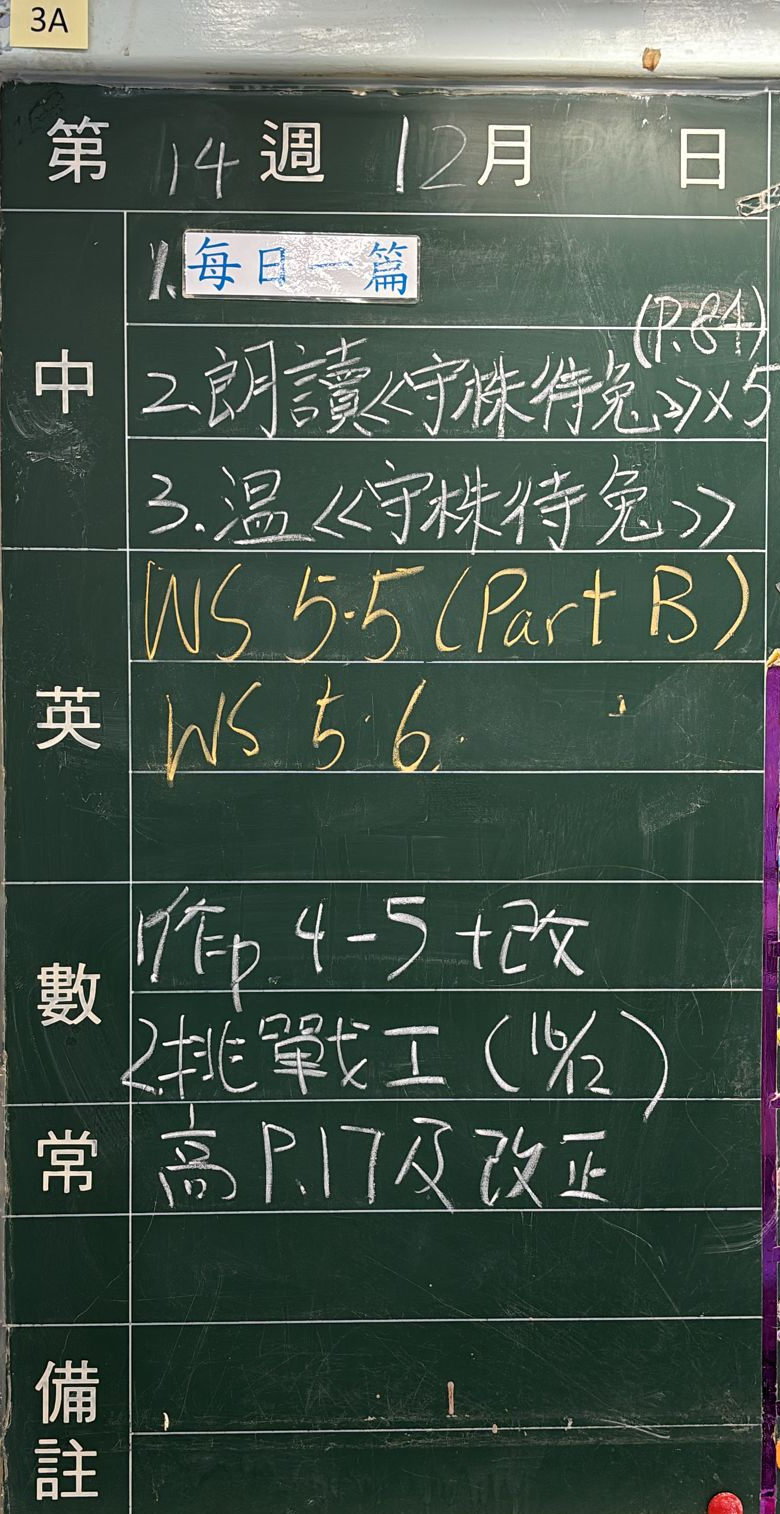 3A
第 14 週 12 月 日
中
1. 每日一篇
(P.84)
2.朗讀《守株待兔》x5
3.温《守株待兔》
英
WS 5.5 (Part B)
WS 5.6
數
1)作p 4-5 +改
2.挑戰工 (16/12)
常
高 P.17及改正
備註